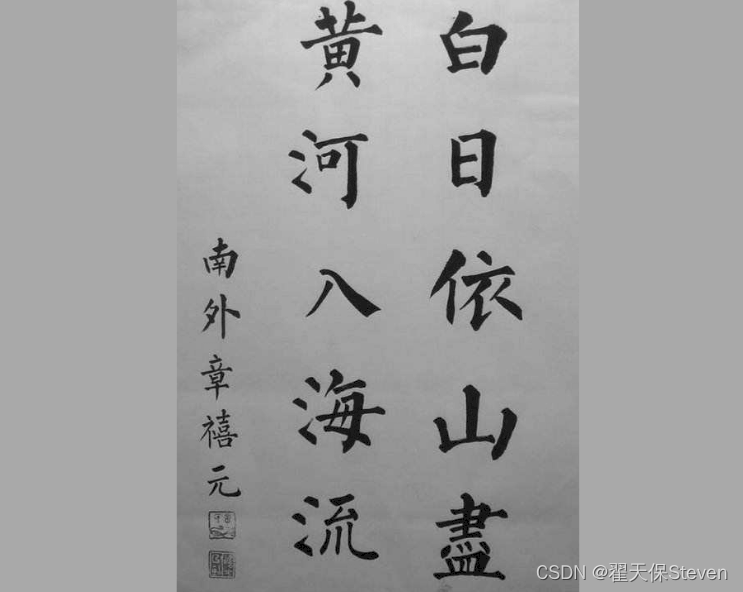 白日依山盡
黄河入海流
南外章禧元
CSDN @翟天保Steven